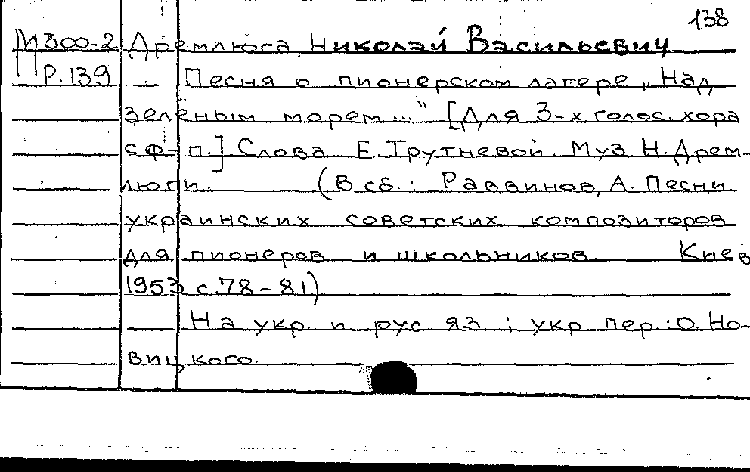 138
М300-2 Дремлюга, Николай Васильевич
Р.139 Песня о пионерском лагере „Над
зелёным морем..." [Для 3-х голос. хора
с ф-п.] Слова Е. Трутневой. Муз. Н. Дрем-
люги. (В сб.: Раввинов, А. Песни
украинских советских композиторов
для пионеров и школьников. Киев
1953 с. 78-81)
На укр. и рус. яз.; укр. пер.: О. Но-
вицкого.